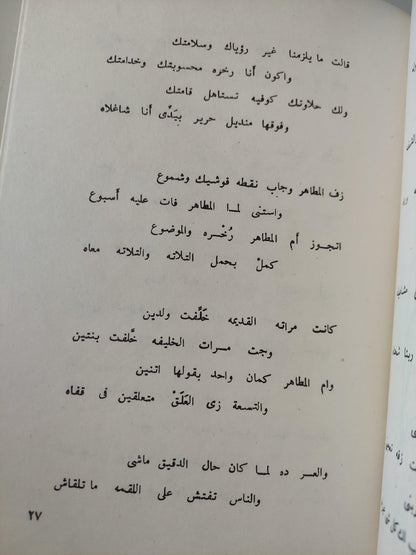 قالت ما يلزمنا غير رؤياك وسلامتك
واكون أنا رخره محسوبتك وخدامتك
ولك حلاوتك كوفيه تستاهل قامتك
وفوقها منديل حرير بيَدّى أنا شاغلاه
زف المطاهر وجاب نقطه فوشيك وشموع
واستنى لمـا المطاهر فات عليه أسبوع
اتجوز أم المطاهر رُخـْـره والموضوع
كملْ بحمل التلاته والتلاته معاه
كانت مراته القديمه خَلِّفت ولدين
وجت مـرات الخليفه خلَّفت بنتين
وام المطاهر كمان واحد بقولها اتنين
والتسعة زى العَلَقْ متعلقين فى قفاه
والعـمر ده لمـا كان حال الدقيق ماشى
والناس تفتش على اللقمه ما تلقاش
٢٧